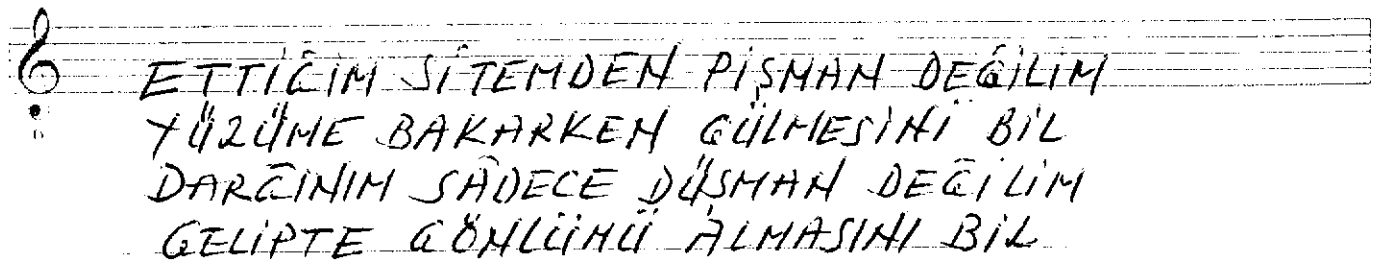 ETTİĞİM SİTEMDEN PİŞMAN DEĞİLİM
YÜZÜME BAKARKEN GÜLMESİNİ BİL
DARĞINIM SÂDECE DÜŞMAN DEĞİLİM
GELİPTE GÖNLÜMÜ ALMASINI BİL